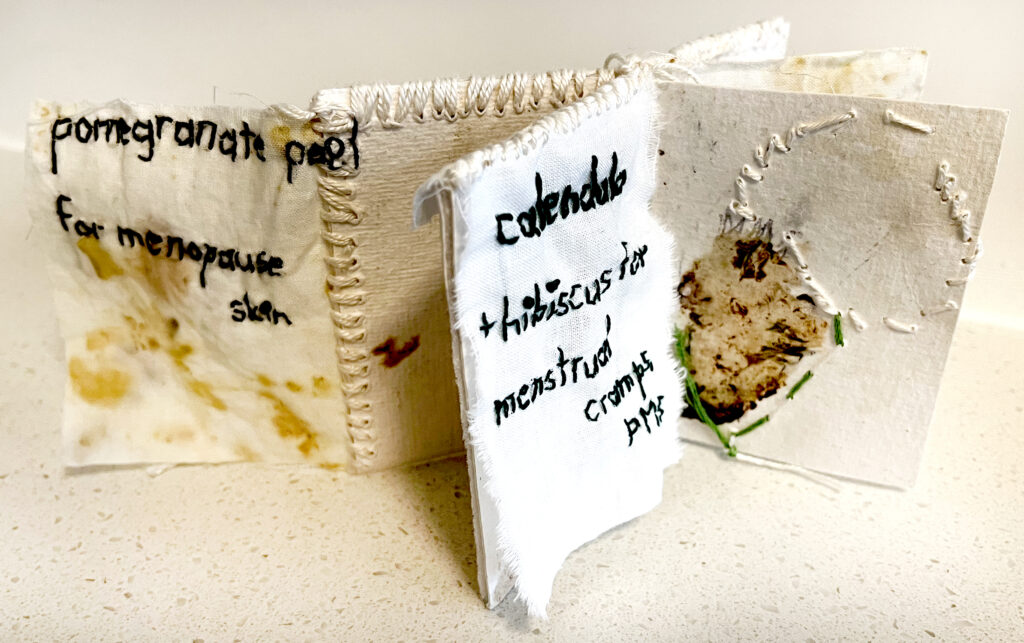 pomegranate peel
for menopause
skin
calendula
+ hibiscus for
menstrual
cramps
PMS